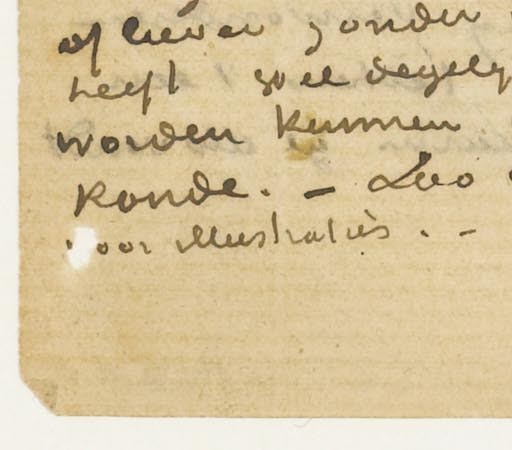 of liever zonder
heeft wel degelijk
worden kunnen
konde. – Zoo
voor illustratie's. –